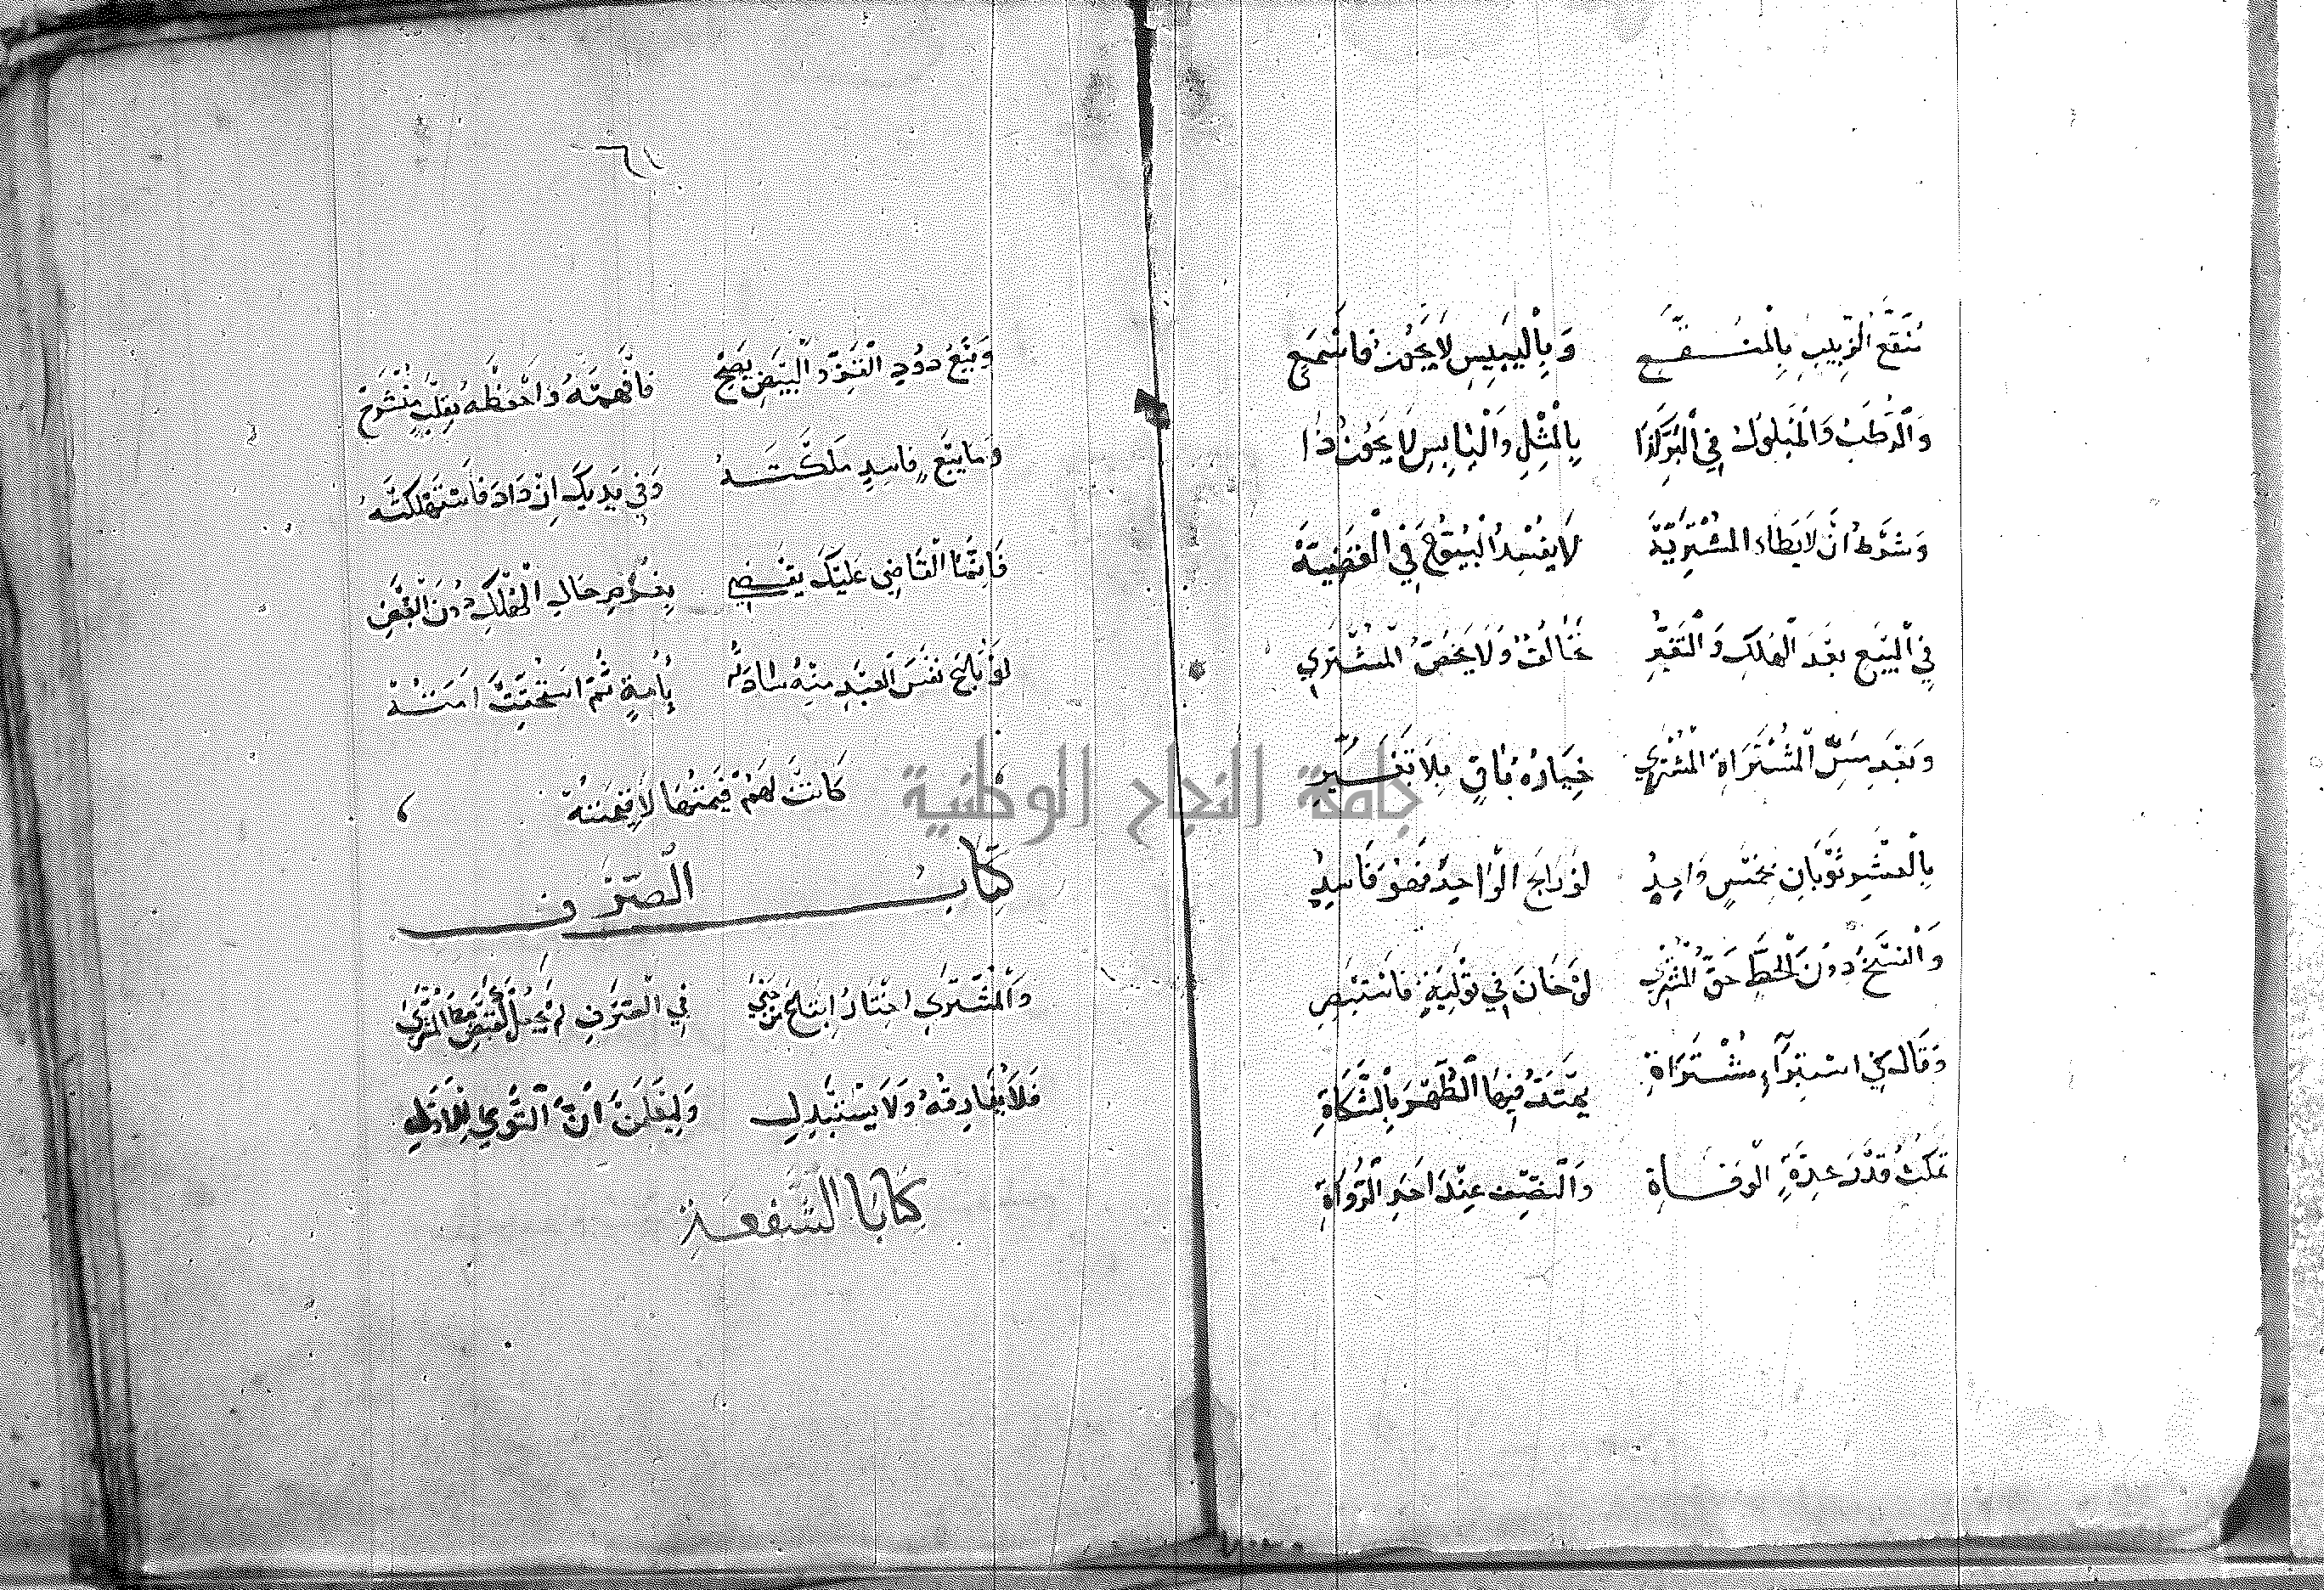 مُنَقَّعُ الزَّبِيبِ بِالْمُنَقَّعِ وَبِالْيَبِيسِ لَا يَجُوزُ فَاسْمَعِ
وَالرُّطَبُ وَالْمَبْلُولُ فِي الْبُرِّ كَذَا بِالْمِثْلِ وَالْيَابِسِ لَا يَجُوزُ ذَا
وَشَرْطُ أَنْ لَا يَطَاءَ الْمَشْرِيَّةَ لَا يُفْسِدُ الْبُيُوعَ فِي الْقَضِيَّةْ
فِي الْبَيْعِ بَعْدَ الْهُلْكِ وَالتَّغَيُّرِ تَحَالُفٌ وَلَا يَخُصُّ الْمُشْتَرِي
وَبَعْدَ مَسِّ الْمُشْتَرَاةِ الْمُشْتَرِي خِيَارُهُ بَاقٍ بِلَا تَغَيُّرِ
بِالْعَشْرِ ثَوْبَانِ بِخَمْسٍ وَاحِدُ لَوْ رَابَحَ الْوَاحِدَ فَهْوَ فَاسِدُ
وَالْفَسْخُ دُونَ الْحَطِّ حَقُّ الْمُشْتَرِي لَوْ خَانَ فِي تَوْلِيَةٍ فَاسْتَبْصِرِ
وَقَالَ فِي اسْتِبْرَآءِ مُشْتَرَاةِ يَمْتَدُّ فِيهَا الطُّهْرُ بِالشَّكَاةِ
تَمْكُثُ قَدْرَ عِدَّةِ الْوَفَاةِ وَالنِّصْفِ عِنْدَ أَحَدِ الرُّوَاةِ
٦١
وَبَيْعُ دُودِ الْقَزِّ وَالْبَيْضِ يَصِحْ فَافْهَمَنْهُ وَاحْفَظْهُ بِقَلْبٍ مُنْشَرِحْ
وَمَا بِبَيْعٍ فَاسِدٍ مَلَكْتَهُ وَفِي يَدَيْكَ ازْدَادَ فَاسْتَهْلَكْتَهُ
فَإِنَّمَا الْقَاضِي عَلَيْكَ يَقْضِي بِغُرْمِ حَالِ الْهُلْكِ دُونَ الْقَبْضِ
لَوْ بَاعَ نَفْسَ الْعَبْدِ مِنْهُ سَادَتُهْ بِأَمَةٍ ثُمَّ اسْتُحِقَّتْ أَمَتُهْ
كَانَتْ لَهُمْ قِيمَتُهَا لَا قِيمَتُهْ
كِتَابُ الصَّرْفِ
وَالْمُشْتَرِي اخْتَارَ اتِّبَاعَ مَنْ جَنَى فِي الصَّرْفِ لَمْ يُجْعَلْ كَقَبْضٍ
فَلَا يُفَارِقْهُ وَلَا يَسْتَبْدِلِ وَلْيَعْلَمَنْ أَنَّ التَّوَى
كِتَابُ الشُّفْعَةِ
جامعة النجاح الوطنية